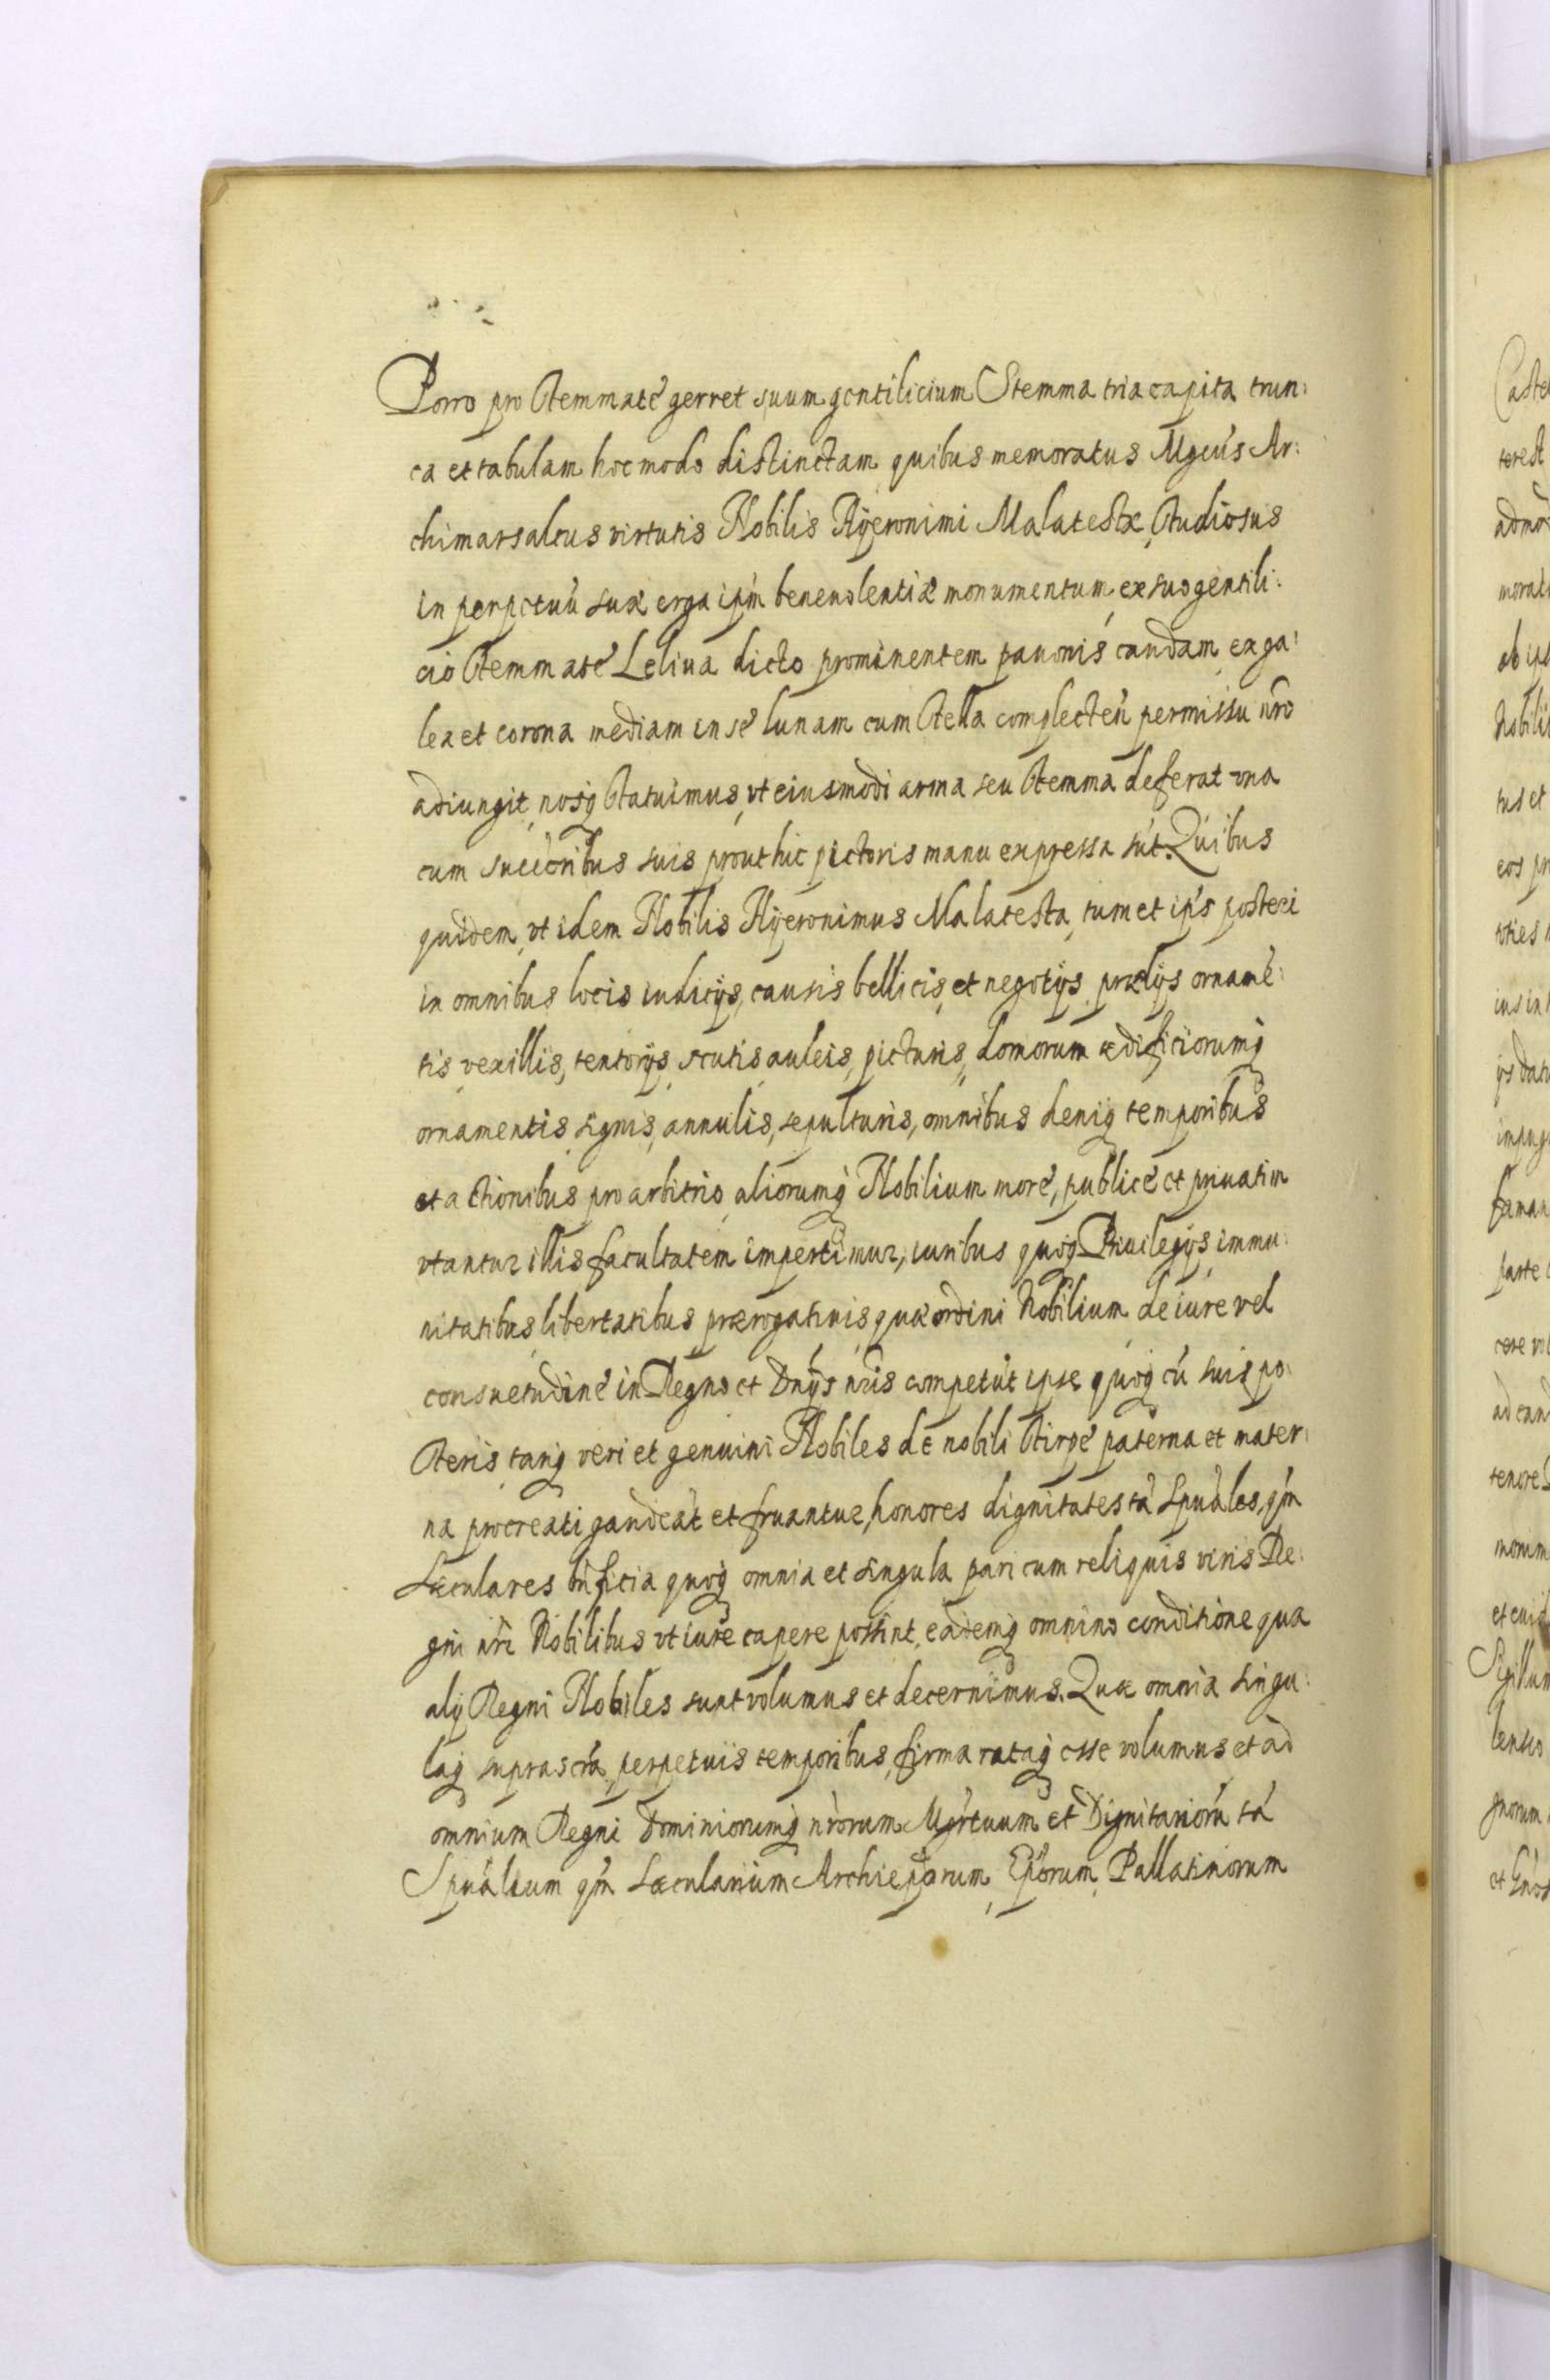 Porro pro stemmate gerret suum gentilicium Stemma tria capita trun:
ca et tabulam hoc modo distinctam quibus memoratus Mgcus Ar:
chimarsalcus virtutis Nobilis Hyeronimi Malatestæ, studiosus
in perpetuũ suæ erga ipm̃ beneuolentiæ monumentum, ex suo gentili:
cio stemmate Leliua dicto prominentem pauonis caudam ex ga:
lea et corona mediam in se lunam cum stella complecteñ permissu nr̃o
adiungit, nosq statuimus, vt eiusmodi arma seu stemma deferat vna
cum succoribus suis prout hic pictoris manu expressa sũt. Quibus
quidem, vt idem Nobilis Hyeronimus Malatesta, tum et ips posteri
in omnibus locis iudicijs, causis bellicis, et negotijs prælijs ornamẽ:
tis vexillis, tentorijs, scutis auleis, picturis, domorum ædificiorumq
ornamentis signis, annulis, sepulturis, omnibus deniq temporibus
et actionibus pro arbitrio aliorumq Nobilium more, publice et priuatim
vtantur illis facultatem impertimur, iuribus quoq Priuilegijs immu:
nitatibus, libertatibus prærogatiuis, quæ ordini Nobilium de iure vel
consuetudine in Regno et Dnijs nr̃is competũt ipse quoq cũ suis po:
steris tanq veri et genuini Nobiles de nobili stirpe paterna et mater:
na procreati gaudeãt et fruantur, honores dignitates tã Spuales, qm̃
Sæculares bñficia quoq omnia et singula pari cum reliquis viris Re:
gni nri Nobilibus vt iure capere possint, eademq omnino conditione qua
alij Regni Nobiles sunt volumus et decernimus. Quæ omnia singu:
laq suprascrã, perpetuis temporibus, firma rataq esse volumus et ad
omnium Regni Dominiorumq nrorum Mgrtuum et Dignitariorũ tã
Spualium qm̃ Sæcularium Archieporum, Eporum, Pallatinorum